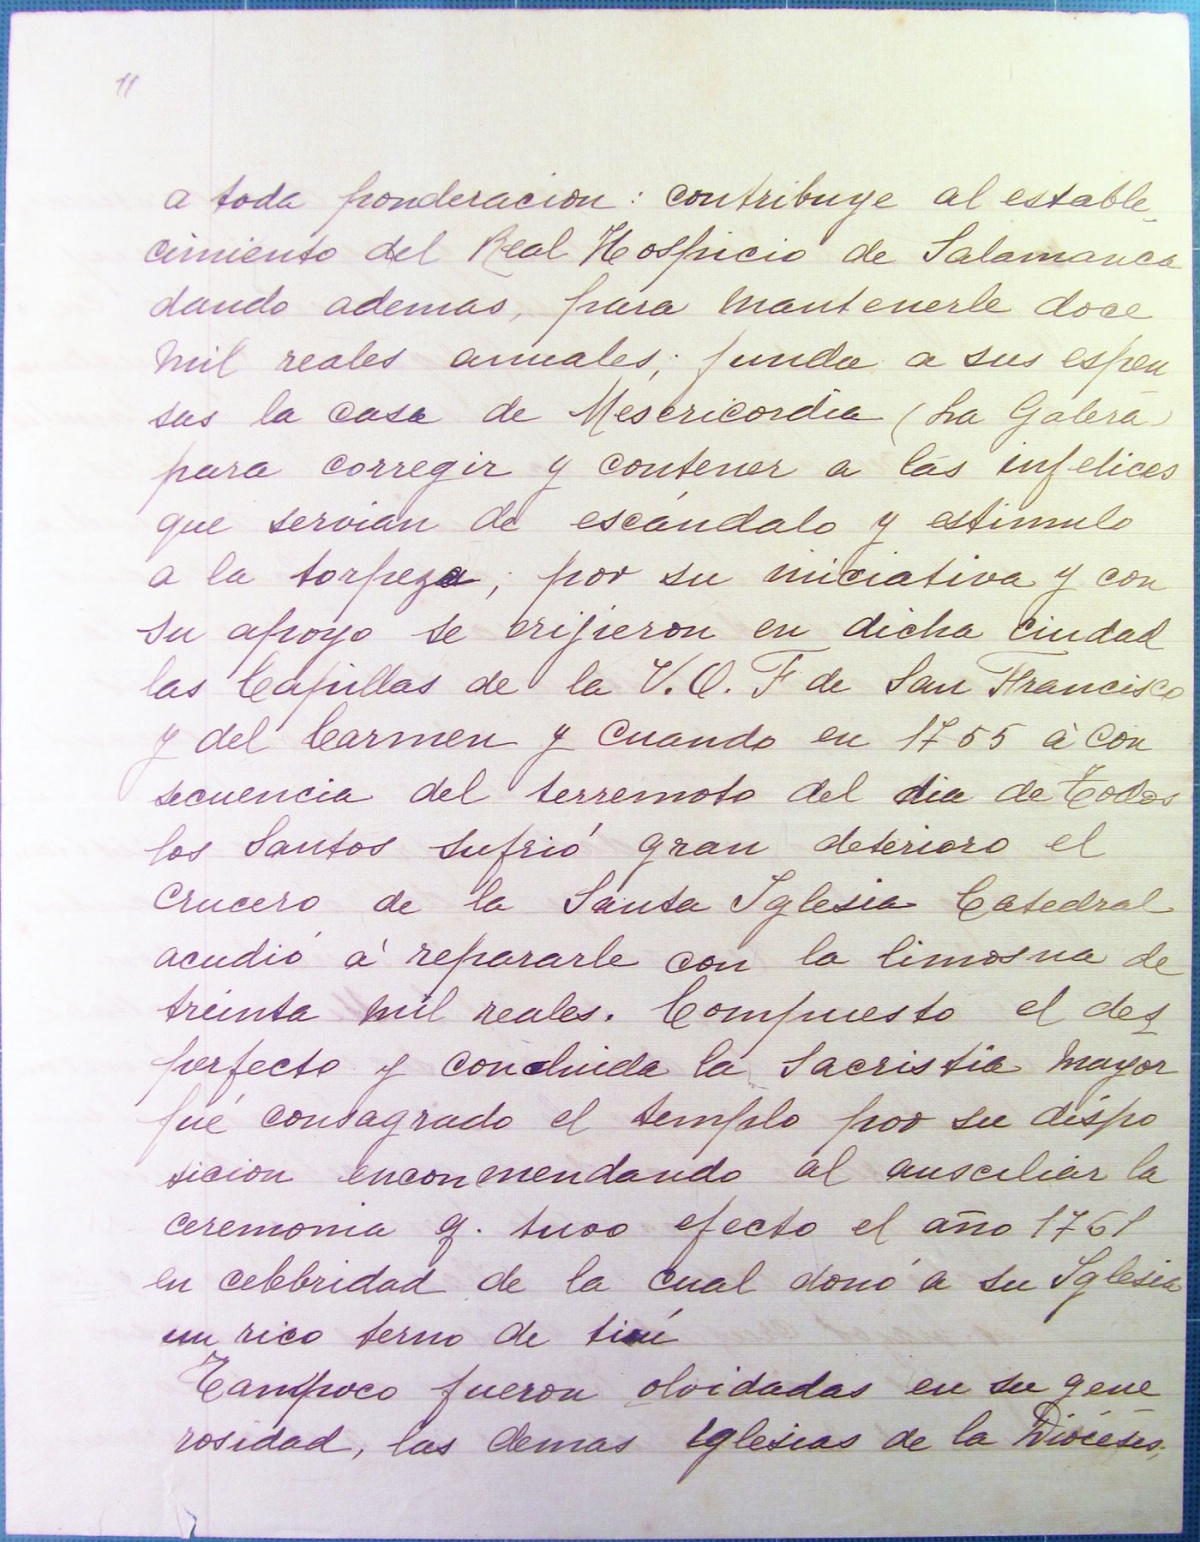 11
a toda ponderacion: contribuye al estable_
cimiento del Real Hospicio de Salamanca
dando ademas, para mantenerle doce
mil reales anuales; funda a sus espen
sas la casa de Misericordia (La Galera)
para corregir y contener a las infelices
que servian de escándalo y estimulo
a la torpeza; por su iniciativa y con
su apoyo se erijieron en dicha ciudad
las Capillas de la V. O. F de San Francisco
y del Carmen y cuando en 1755 à con
secuencia del terremoto del dia de Todos
los Santos sufrió gran deterioro el
crucero de la Santa Iglesia Catedral
acudió á repararle con la limosna de
treinta mil reales. Compuesto el des
perfecto y concluida la Sacristia mayor
fué consagrado el templo por su dispo
sicion enconmendando al ausciliar la
ceremonia q. tuvo efecto el año 1761
en celebridad de la cual donó a su Iglesia
un rico terno de tisú
Tampoco fueron olvidadas en su gene
rosidad, las demas iglesias de la Diócesis,